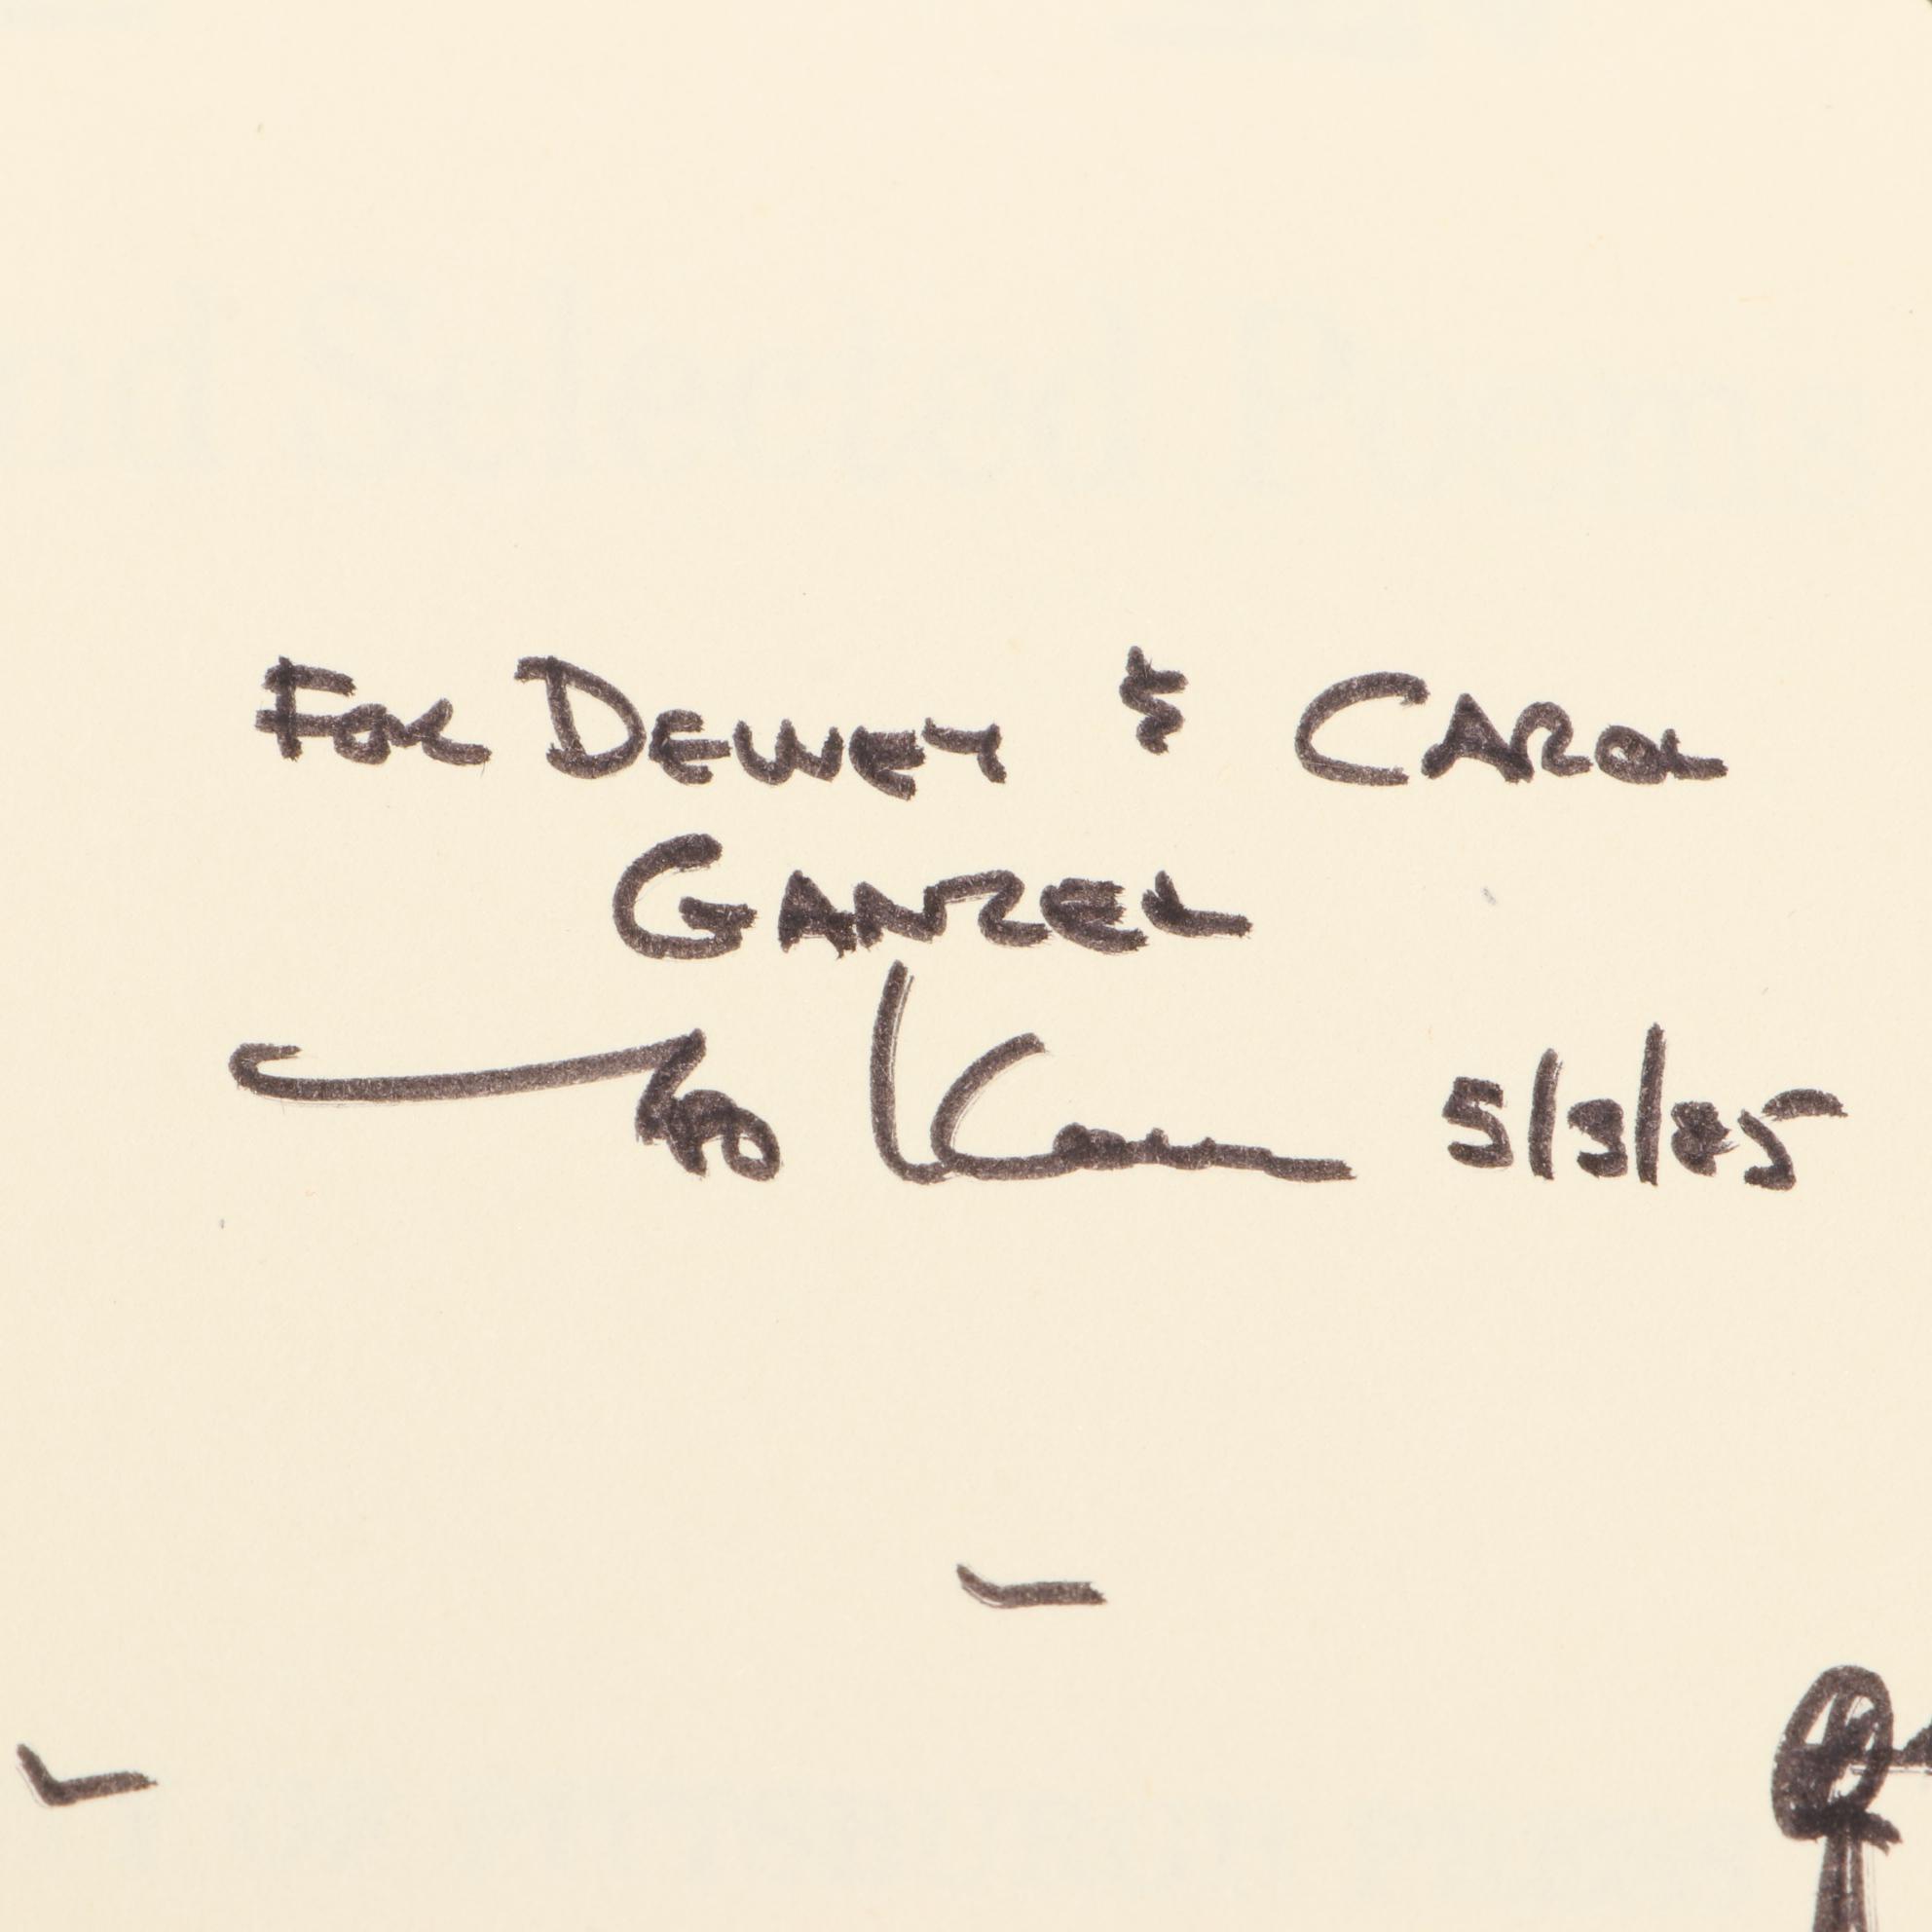 FOR DEWEY & CAROL
GANZEL
5/3/85